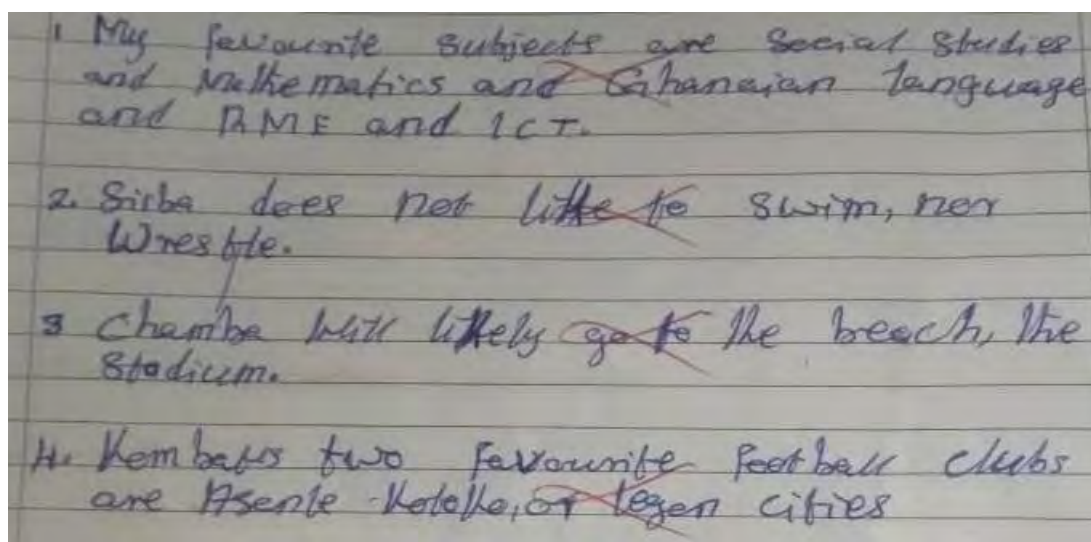 1 My favourite subjects are Social Studies
and Mathematics and Ghanaian language
and RME and ICT.
2. Sisba does not like to swim, nor
Wrestle.
3 Chamba will likely go to the beach, the
Stadium.
4. Kembats two favourite football clubs
are Asante Kotoko, or legon cities